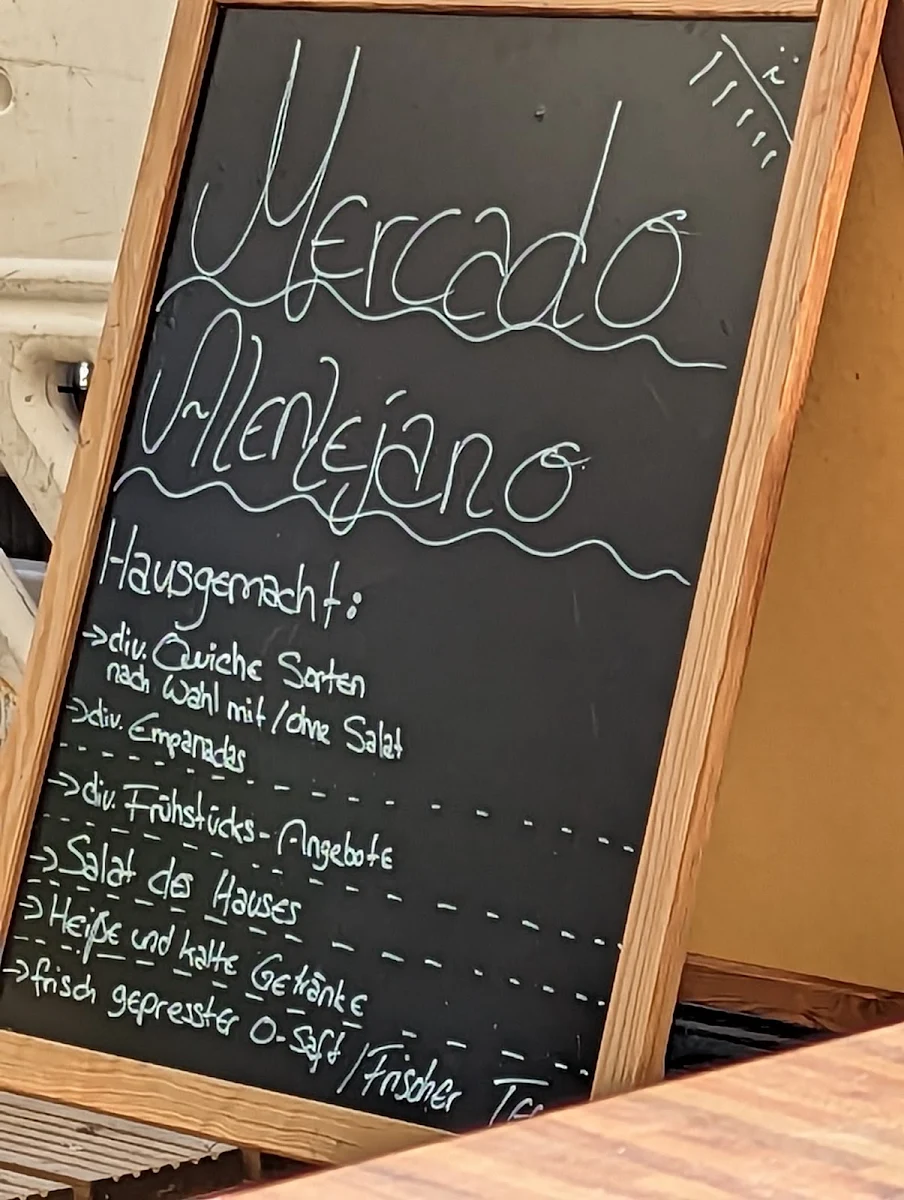 i
Mercado
Alentejano
Hausgemacht:
→div. Quiche Sorten
nach Wahl mit/ohne Salat
→div. Empanadas
→div. Frühstücks-Angebote
→Salat des Hauses
→Heiße und kalte Getränke
→frisch gepresster O-Saft/Frischer